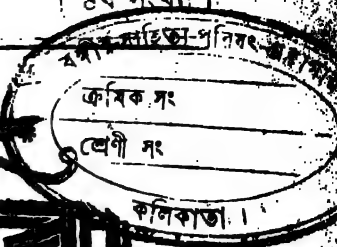 বঙ্গীয় সাহিত্য-পরিষৎ
ক্রমিক সং
শ্রেণী সং
কলিকাতা।